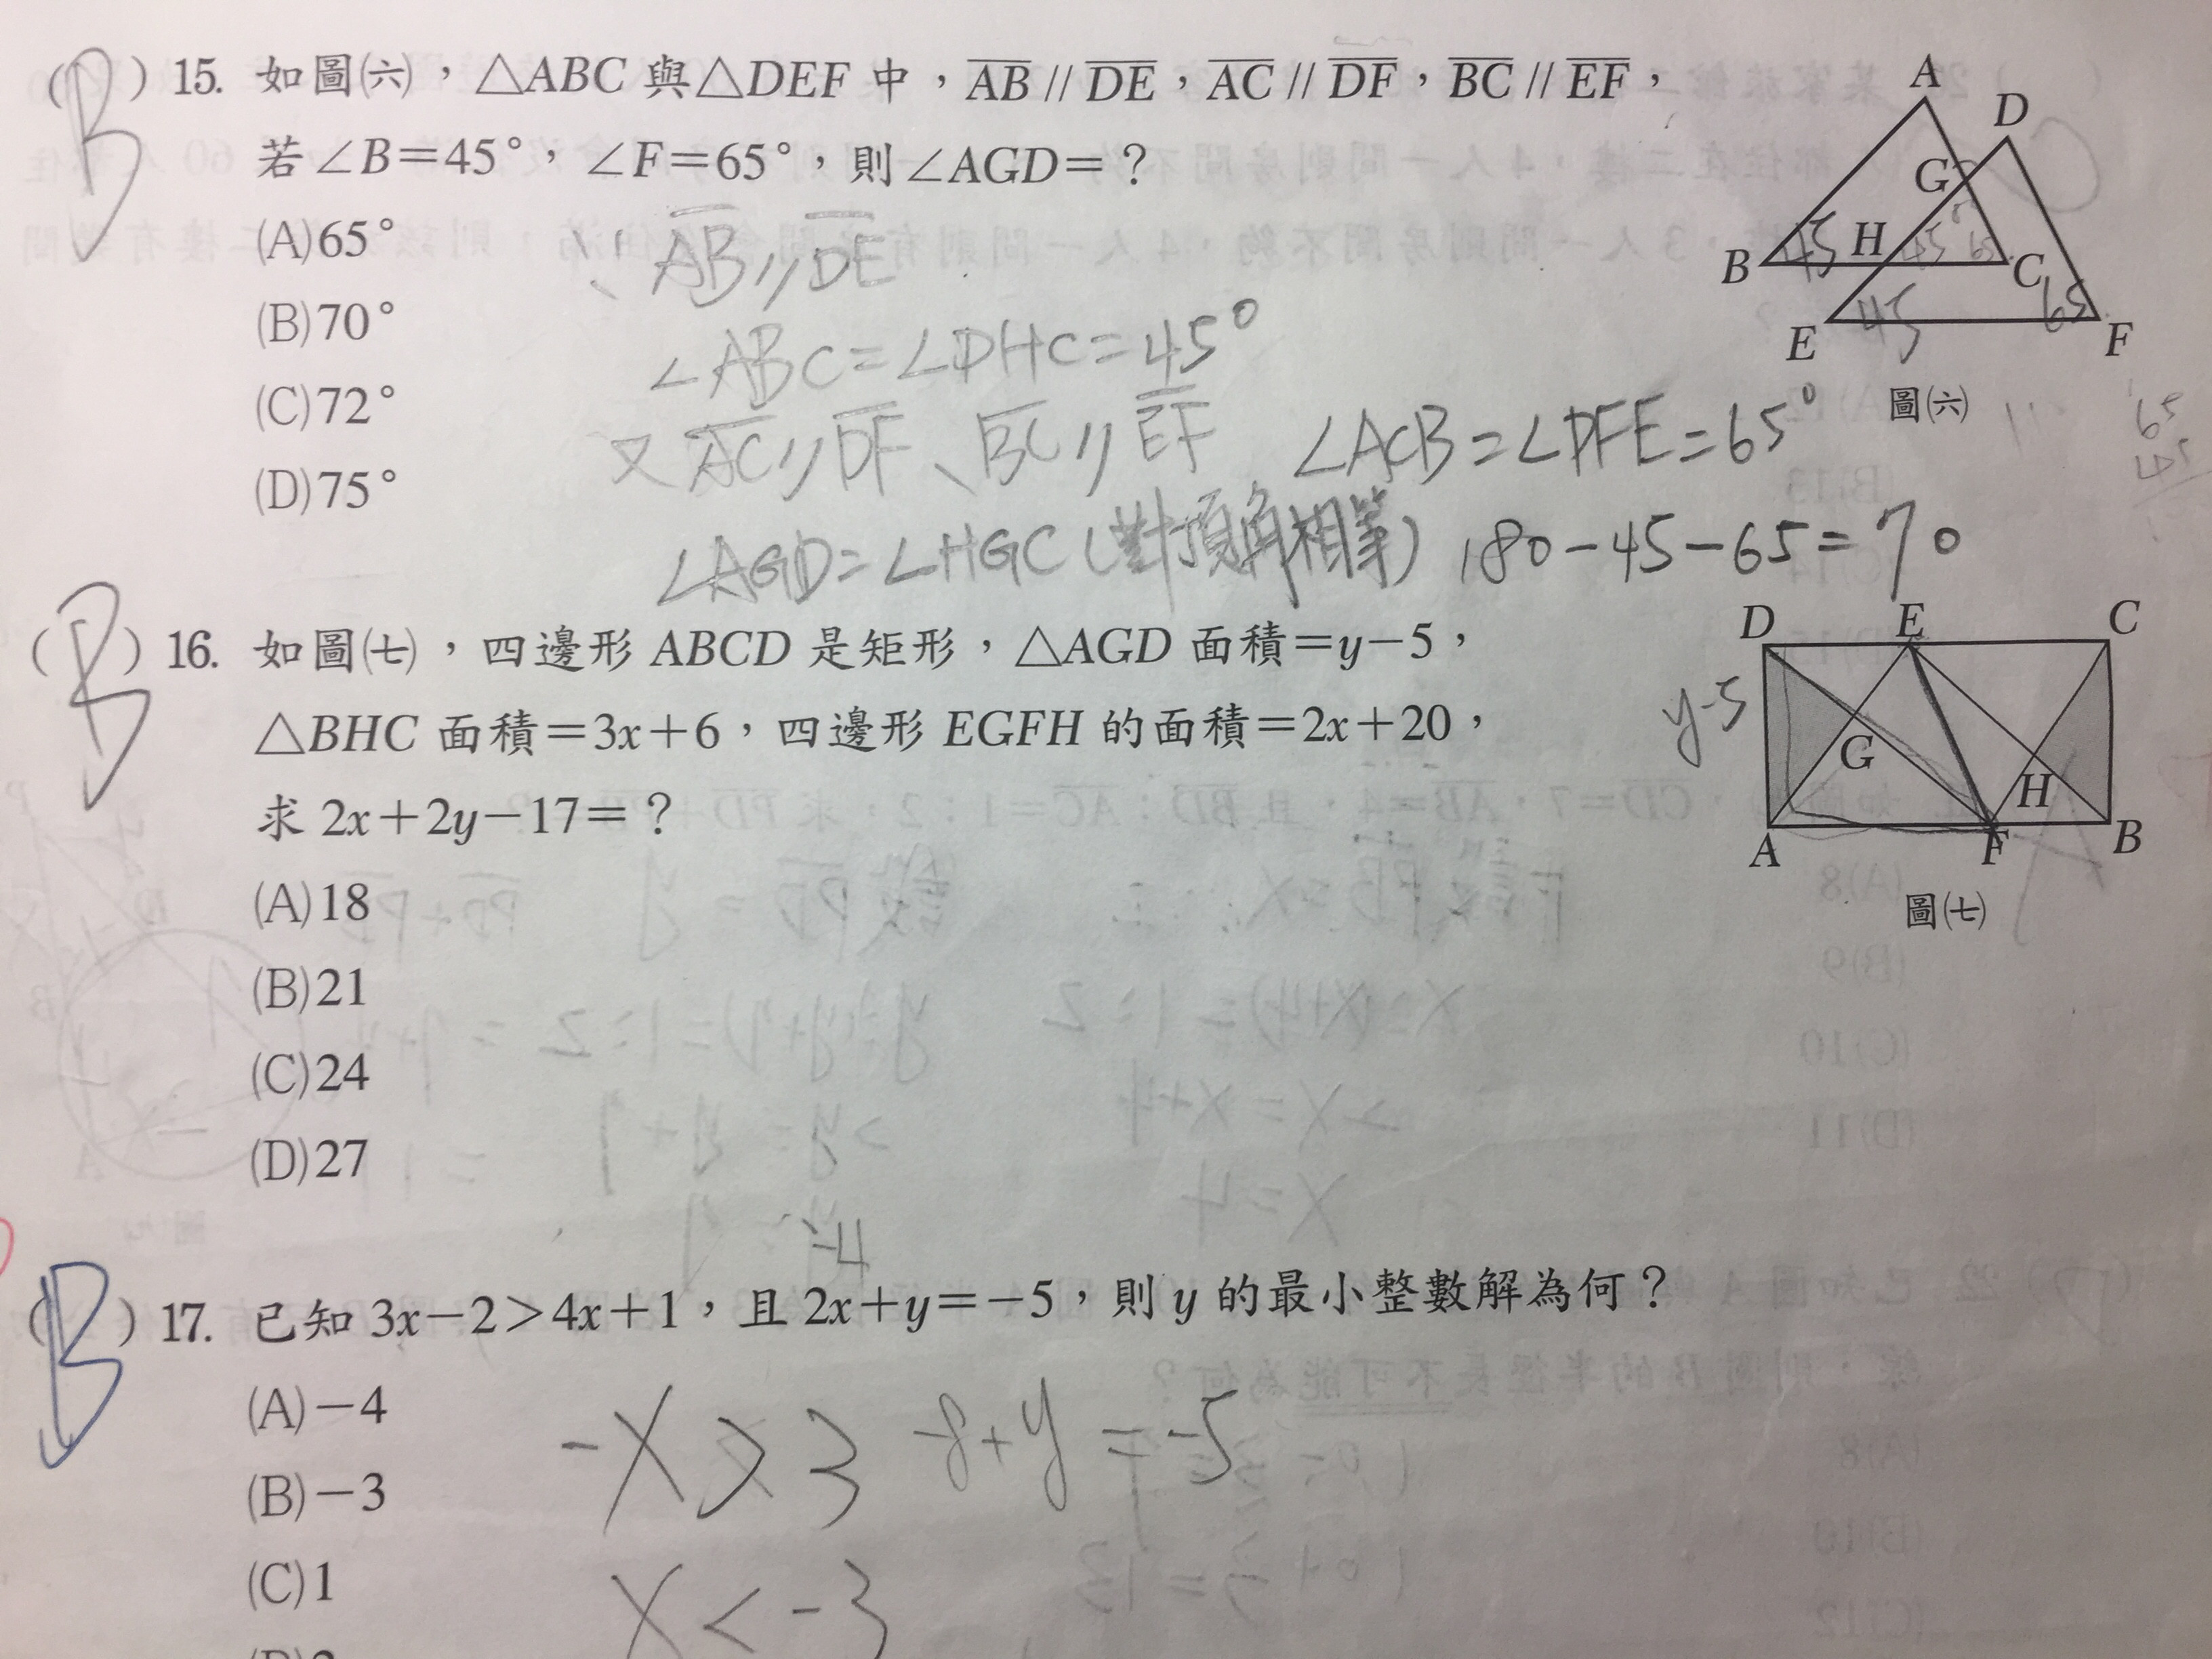 (B) 15. 如圖㈥，△ABC 與△DEF 中，AB // DE，AC // DF，BC // EF，
若∠B＝45°，∠F＝65°，則∠AGD＝？
(A)65°
(B)70°
(C)72°
(D)75°
∵ AB // DE
∠ABC=∠DHC=45°
又 AC // DF、BC // EF ∠ACB=∠DFE=65°
∠AGD=∠HGC (對頂角相等) 180-45-65=70
A
D
G
B 45 H 45 65 C
E 45 65 F
圖㈥
65
45
(B) 16. 如圖㈦，四邊形 ABCD 是矩形，△AGD 面積＝y－5，
△BHC 面積＝3x＋6，四邊形 EGFH 的面積＝2x＋20，
求 2x＋2y－17＝？
(A)18
(B)21
(C)24
(D)27
D E C
y-5
G H
A F B
圖㈦
-4
(B) 17. 已知 3x－2＞4x＋1，且 2x＋y＝－5，則 y 的最小整數解為何？
(A)－4
(B)－3
(C)1
-x>3 -8+y=-5
x<-3